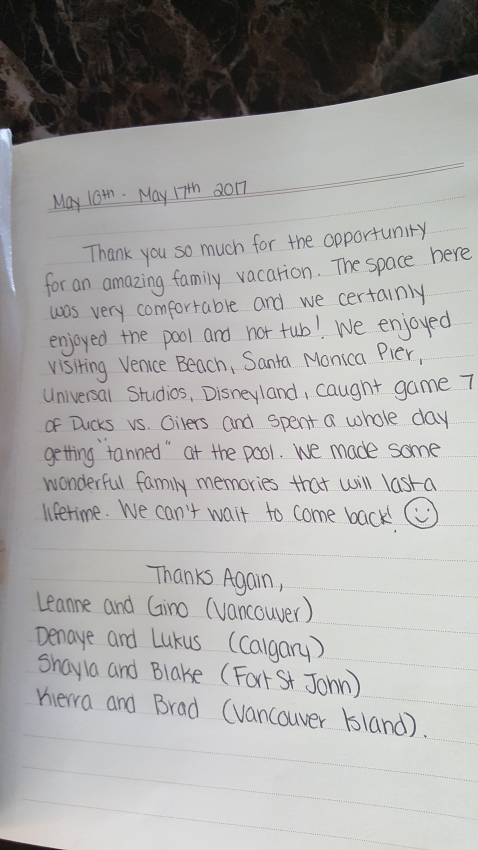 May 10th - May 17th 2017
Thank you so much for the opportunity
for an amazing family vacation. The space here
was very comfortable and we certainly
enjoyed the pool and hot tub! We enjoyed
visiting Venice Beach, Santa Monica Pier,
Universal Studios, Disneyland, caught game 7
of Ducks vs. Oilers and spent a whole day
getting "tanned" at the pool. We made some
wonderful family memories that will last a
lifetime. We can't wait to come back!
Thanks Again,
Leanne and Gino (Vancouver)
Denaye and Lukus (Calgary)
Shayla and Blake (Fort St John)
Kierra and Brad (Vancouver Island).